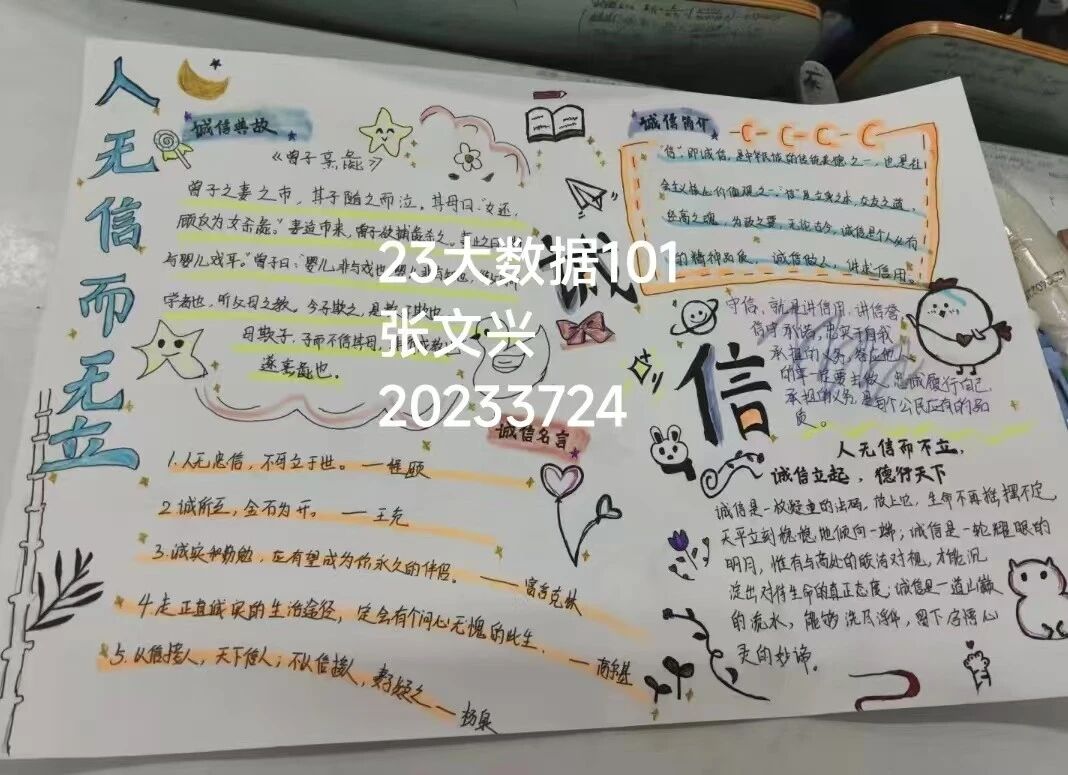 人无信而无立
诚信典故
《曾子烹彘》
曾子之妻之市，其子随之而泣。其母曰：“女还，
顾反为女杀彘。”妻适市来，曾子欲捕彘杀之。妻止之曰
与婴儿戏耳。”曾子曰：“婴儿非与戏也
学者也，听父母之教。今子欺之，是教子欺也
母欺子，子而不信其母
遂烹彘也。
诚信简介
“信”即诚信，是中华民族的传统美德之一，也是社
会主义核心价值观之一，“信”是立身之本，交友之道，
经商之魂，为政之要，无论古今，诚信是个人必有
的精神品质。诚信做人，讲求信用。
诚信
守信，就是讲信用，讲信誉，
信守承诺，忠实于自我
承担的义务，答应他人
的事一定要去做，忠诚履行自己
承担的义务是每个公民应有的品
质。
23大数据101
张文兴
20233724
诚信名言
1.人无忠信，不可立于世。——程颐
2.诚所至，金石为开。——王充
3.诚实和勤勉，应有望成为你永久的伴侣。——富兰克林
4.走正直诚实的生活途径，定会有个问心无愧的此生。——高尔基
5.以信接人，天下信人；不以信接人，妻子疑之——杨泉
人无信而不立，
诚信立起，德行天下
诚信是一枚凝重的砝码，放上它，生命不再摇摆不定，
天平立刻稳稳地倾向一端；诚信是一轮耀眼的
明月，惟有与高处的皎洁对视，才能沉
淀出对待生命的真正态度；诚信是一道山巅
的流水，能够洗尽浮华，留下启得心
灵的妙谛。